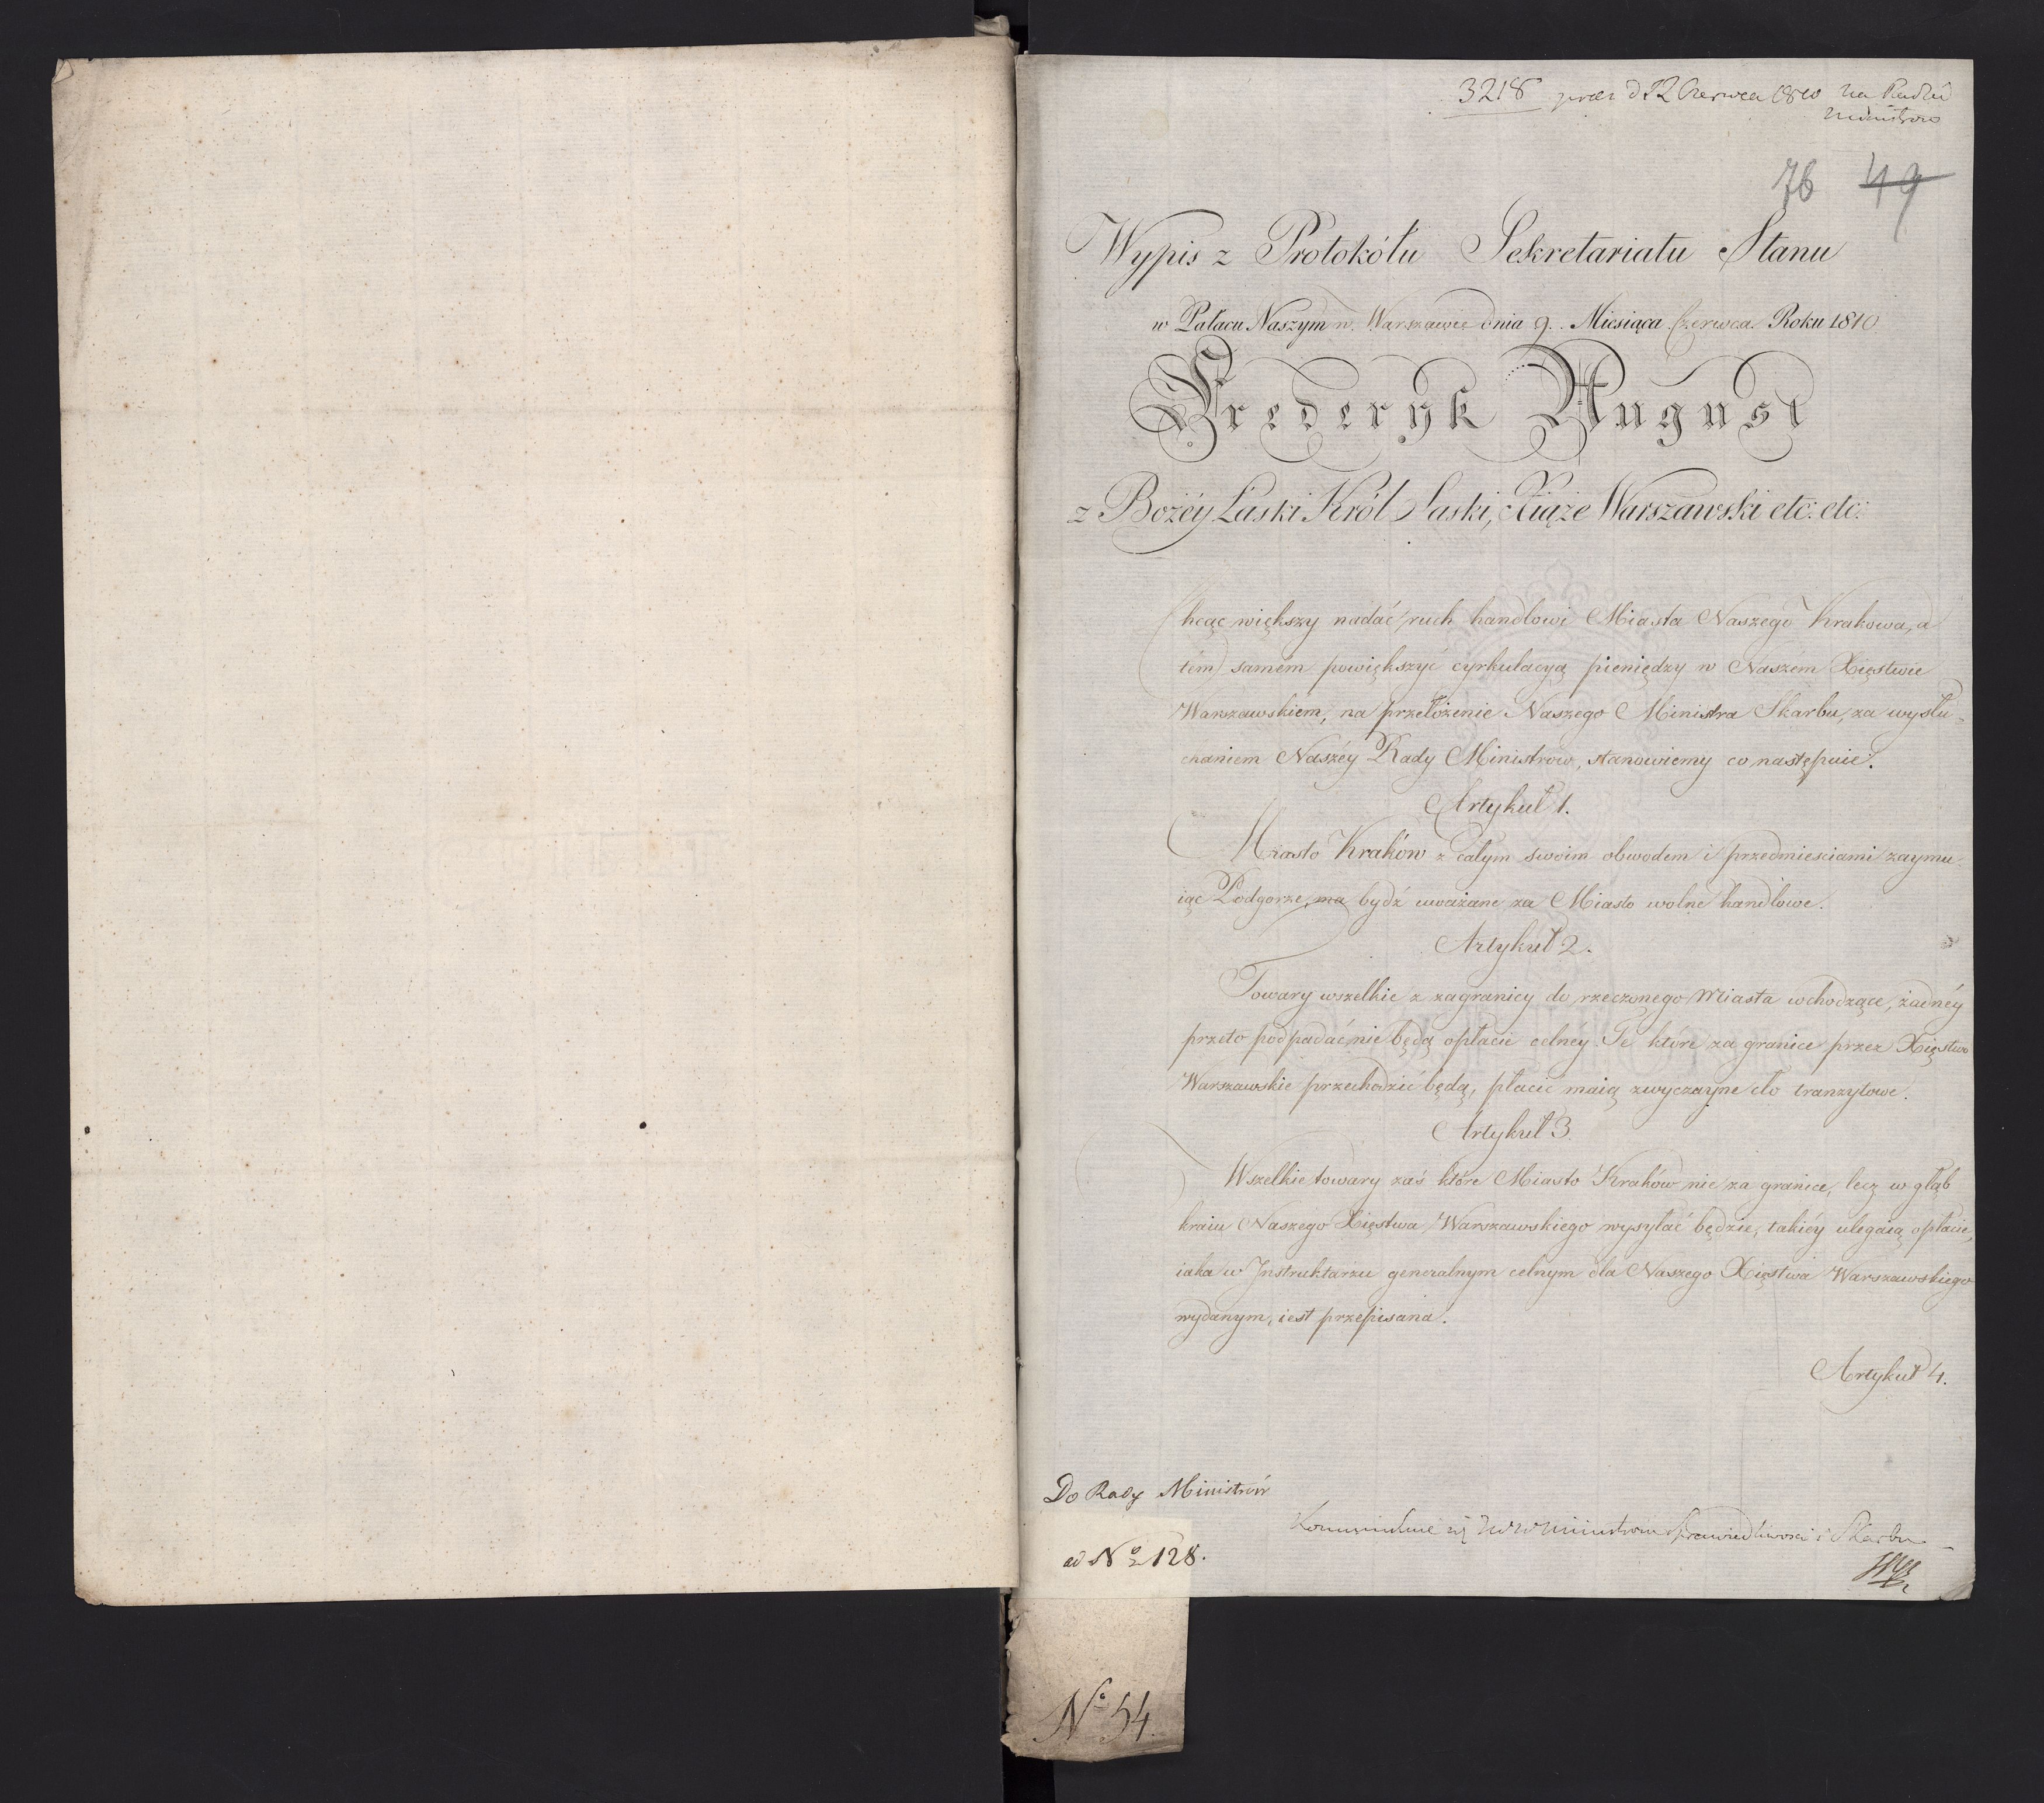 3218 prez d 12 Czerwca 1810 na Radzie
Ministrów
76 49
Wypis z Protokółu Sekretariatu Stanu
w Pałacu Naszym w Warszawie dnia 9. Miesiąca Czerwca Roku 1810
Frederyk August
z Bożéy Łaski Król Saski, Xiąże Warszawski etc: etc:
Chcąc większy nadać ruch handlowi Miasta Naszego Krakowa, a
tém samém powiększyć cyrkulacyą pieniędzy w Naszém Xięstwie
Warszawskiem, na przełożenie Naszego Ministra Skarbu, za wysłu-
chaniem Naszéy Rady Ministrów, stanowiemy co następuie.
Artykuł 1.
Miasto Kraków z całym swoim obwodem i przedmiesciami zaymu-
iąc Podgorze, ma bydź uważane za Miasto wolne handlowe.
Artykuł 2.
Towary wszelkie z zagranicy do rzeczonego Miasta wchodzące, żadnéy
przeto podpadać nie będą opłacie celnéy. Te które za granice przez Xięstwo
Warszawskie przechodzić będą, płacić maią zwyczayne cło tranzytowe.
Artykuł 3.
Wszelkie towary zaś które Miasto Kraków nie za granice, lecz w głąb
kraiu Naszego Xięstwa Warszawskiego wysyłać będzie, takiéy ulegaią opłacie,
iaka w Instruktarzu generalnym celnym dla Naszego Xięstwa Warszawskiego
wydanym, iest przepisana.
Artykuł 4.
Do Rady Ministrów
Ministrom Sprawiedliwosci i Skarbu
ad No 128.
No 54.